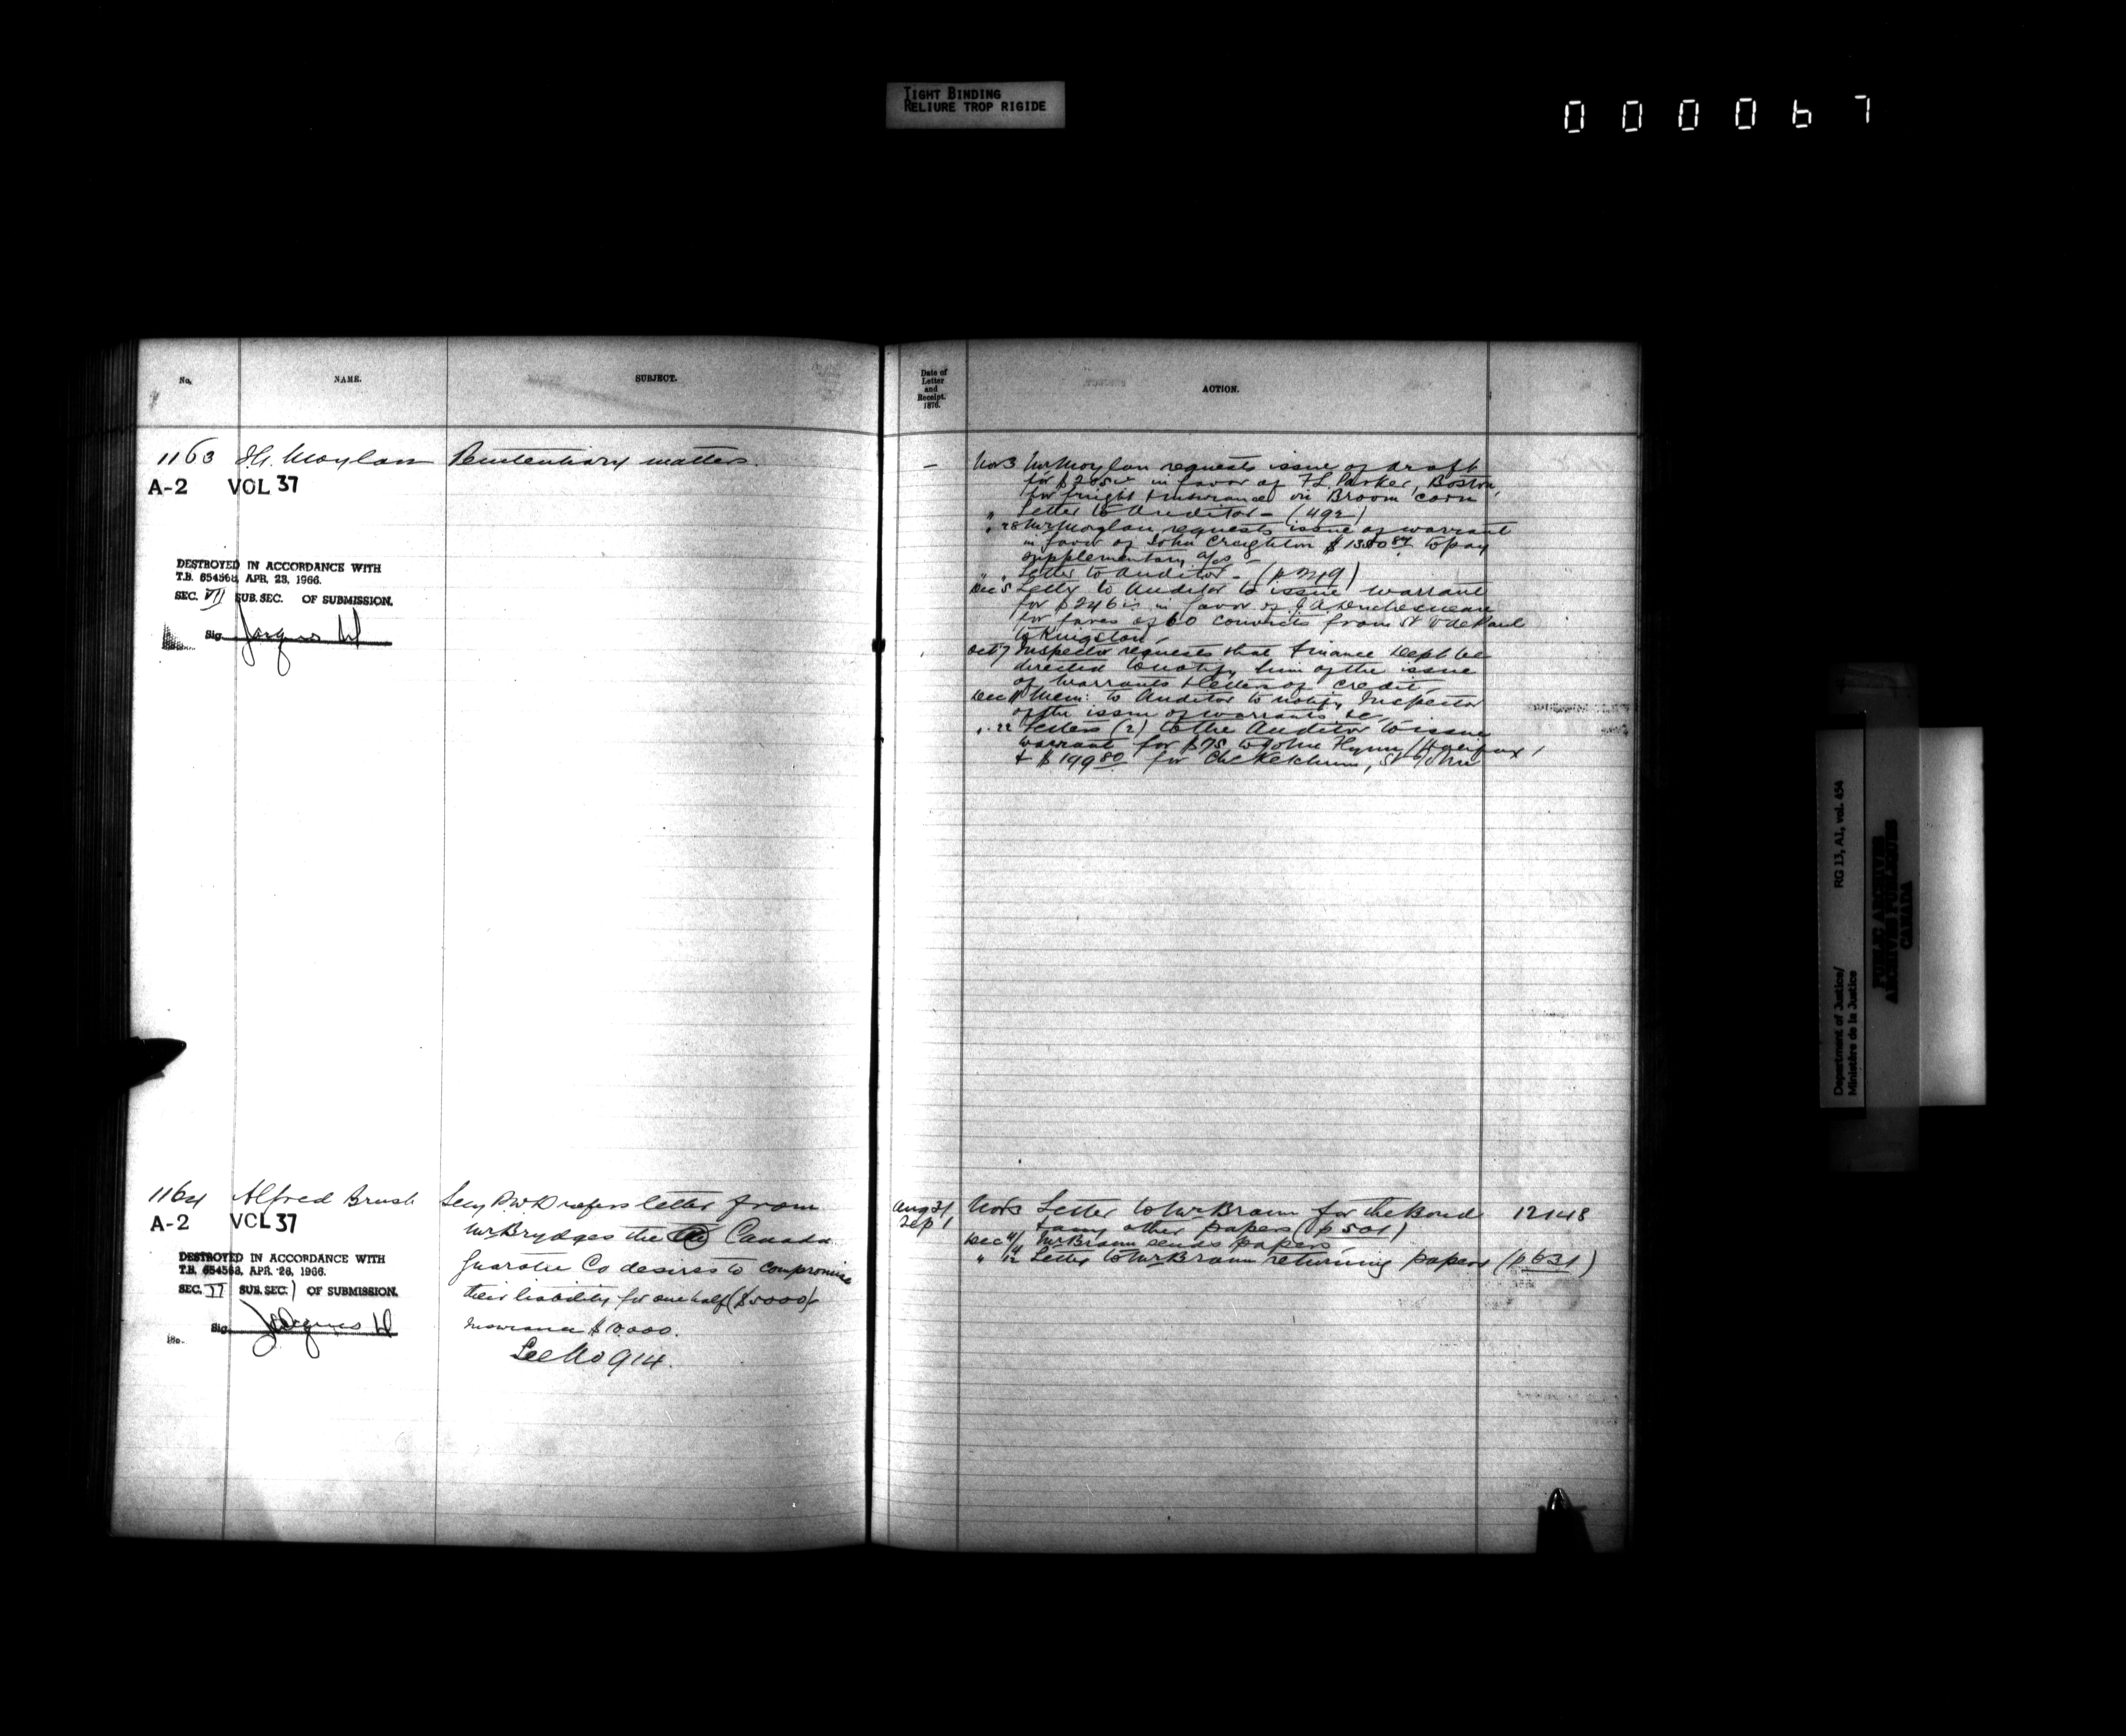 TIGHT BINDING
RELIURE TROP RIGIDE
000067
No.
NAME.
SUBJECT.
1163 J.G. Moylan Penitentiary matters.
A-2 VOL 37
DESTROYED IN ACCORDANCE WITH
T.B. 654568, APR. 28, 1966.
SEC. VII SUB. SEC. OF SUBMISSION.
Sig.
1164 Alfred Brush Secy P.W.D refers letter from
A-2 VOL 37
Mr Brydges the Canada
Guarantee Co desires to compromise
their liability for one half ($5000)
Insurance $10.000.
See No 914.
DESTROYED IN ACCORDANCE WITH
T.B. 654568, APR. 28, 1966.
SEC. VI SUB. SEC. ) OF SUBMISSION.
Sig.
Date of
Letter
and
Receipt.
1876.
ACTION.
— Nov 3 Mr Moylan requests issue of draft
for in favor of F L Parker, Boston,
for freight & insurance on Broom corn
" Letter to Auditor - (492)
" 28 Mr Moylan requests issue of warrant
in favor of John Creighton to pay
supplementary a/cs -
" " Letter to Auditor - (p 249)
Dec 5 Letter to Auditor to issue warrant
for in favor of J. A. Duchesneau
for fares of 60 convicts from St V de Paul
to Kingston.
Oct 7 Inspector requests that Finance Dept be
directed to notify him of the issue
of warrants & letters of credit.
Dec 11 Mem: to Auditor to notify Inspector
of the issue of warrants &c.
" 22 Letters (2) to the Auditor to issue
warrant for $75 to John Flynn (Halifax)
& $199 80 for Ketchum, St John
Aug 31 Nov 3 Letter to Mr Braun for the Bond 12148
Sep 1 & any other papers (p 501)
Dec 4 Mr Braun sends papers
" 12 Letter to Mr Braun returning papers (p 631)
Department of Justice/
Ministère de la Justice
RG 13, A1, vol. 454
PUBLIC ARCHIVES
ARCHIVES PUBLIQUES
CANADA